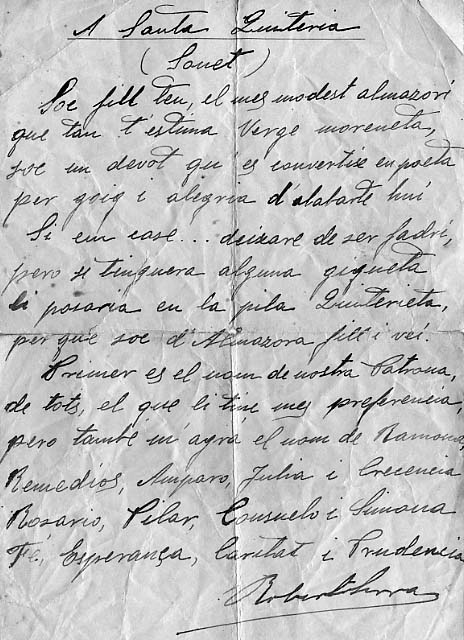 A Santa Quiteria
(Sonet)
Soc fill teu, el mes modest almazorí
que tan t'estima Verge moreneta,
soc un devot qu'es convertix en poeta
per goig i alegria d'alabarte huí
Si em case... deixare de ser fadrí,
pero si tinguera alguna giqueta
li posaria en la pila Quiterieta,
per que soc d'Almazora fill i veí.
Primer es el nom de nostra Patrona,
de tots, el que li tinc mes preferencia,
pero també m'agrá el nom de Ramona,
Remedios, Amparo, Julia i Crecencia
Rosario, Pilar, Consuelo i Simona
Fé, Esperança, Caritat i Prudencia
Robert Serra